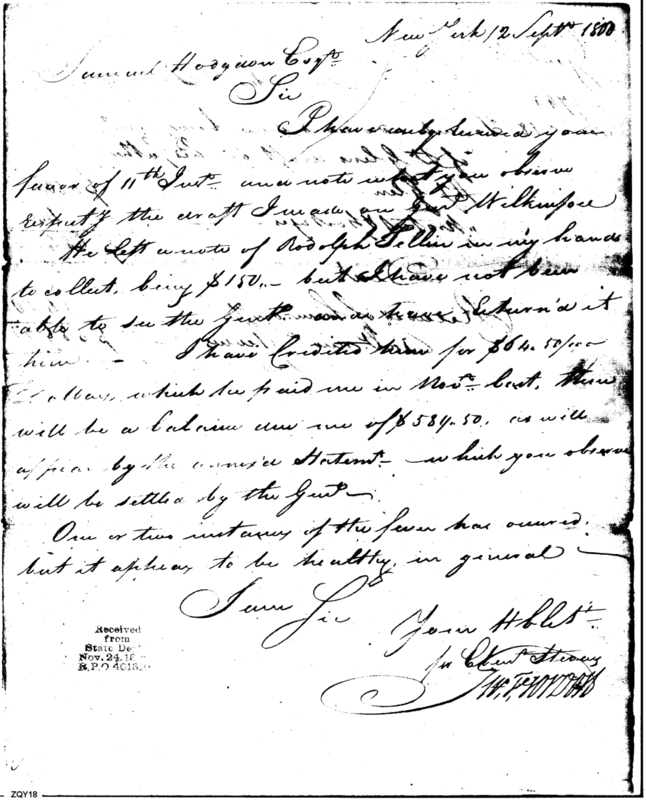 New York 12 Septr. 1800
Samuel Hodgdon Esqr.
Sir
I have received your
favor of 11th Inst. and note what you observe
respectg the draft I made on Genl Wilkinson
He left a note of Rodolph in my hands
to collect, being $150.- but I have not been
able to see the Gentn and have Return'd it
him - I have Credited him for $64.50/100
Dollars, which he paid me in Novr. last, there
will be a balance due me of $584.50. as will
appear by the annex'd Statemt. - which you observe
will be settled by the Genl.
One or two instances of the fever has occured,
but it appears to be healthy, in general
I am Sir
Your H ble St.
for Eben Stevens
Received
from
State De
Nov. 24, 18
R.P.O 4013
ZQY18